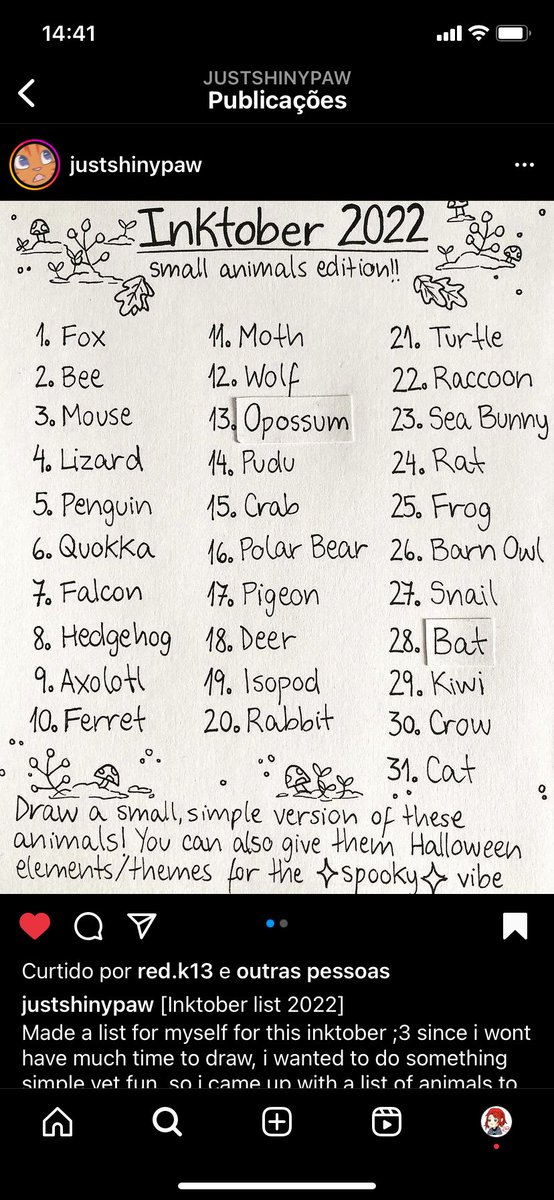 14:41
JUSTSHINYPAW
Publicações
justshinypaw
Inktober 2022
small animals edition!!
1. Fox
2. Bee
3. Mouse
4. Lizard
5. Penguin
6. Quokka
7. Falcon
8. Hedgehog
9. Axolotl
10. Ferret
11. Moth
12. Wolf
13. Opossum
14. Pudu
15. Crab
16. Polar Bear
17. Pigeon
18. Deer
19. Isopod
20. Rabbit
21. Turtle
22. Raccoon
23. Sea Bunny
24. Rat
25. Frog
26. Barn Owl
27. Snail
28. Bat
29. Kiwi
30. Crow
31. Cat
Draw a small, simple version of these
animals! You can also give them Halloween
elements/themes for the ✧spooky✧ vibe
Curtido por red.k13 e outras pessoas
justshinypaw [Inktober list 2022]
Made a list for myself for this inktober ;3 since i wont
have much time to draw, i wanted to do something
simple yet fun, so i came up with a list of animals to